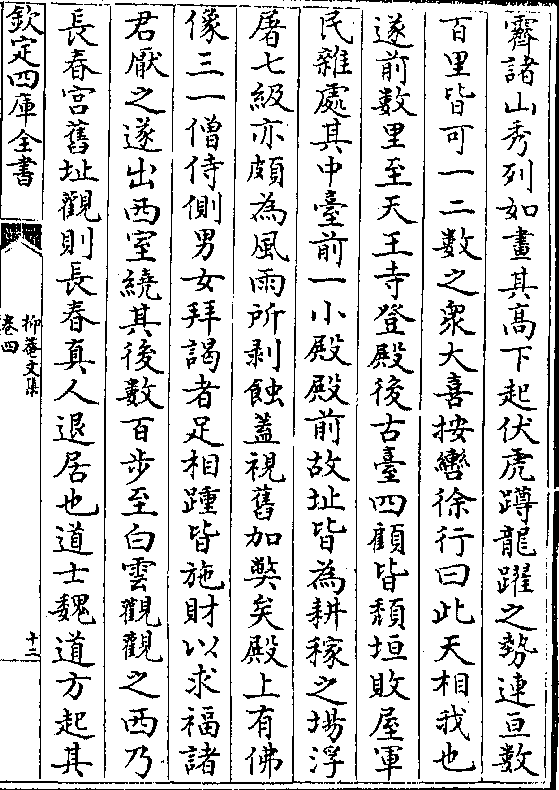 霽諸山秀列如畫其髙下起伏虎蹲龍躍之勢連亘數
百里皆可一二數之衆大喜按轡徐行曰此天相我也
遂前數里至天王寺登殿後古臺四顧皆頽垣敗屋軍
民雜處其中臺前一小殿殿前故址皆為耕稼之場浮
屠七級亦頗為風雨所剥蝕葢視舊加弊矣殿上有佛
像三一僧侍側男女拜謁者足相踵皆施財以求福諸
君厭之遂出西室繞其後數百步至白雲觀觀之西乃
長春宫舊址觀則長春真人退居也道士魏道方起其
欽定四庫全書
柳菴文集
卷四
十二